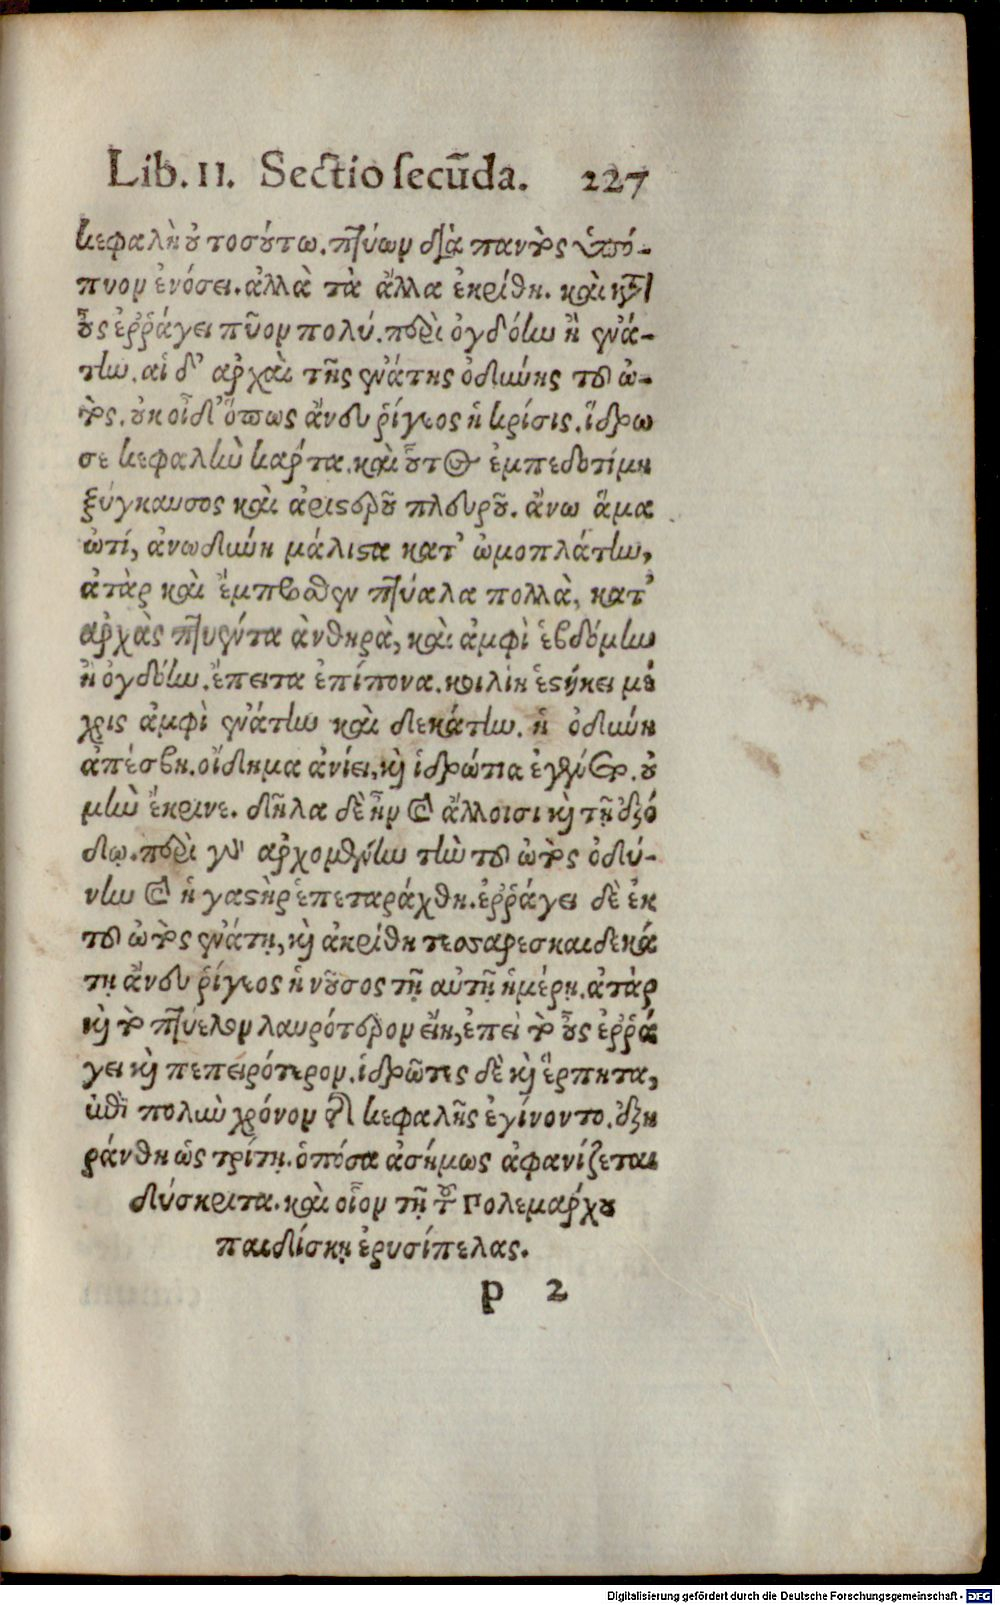 Lib. II. Sectio secūda. 227
κεφαλὴ οὐ τοσούτω. πτύων διὰ παντὸς ὑπό-
πυον ἐνόσει. ἀλλὰ τὰ ἄλλα ἐκρίθη. καὶ κατ'
οὖς ἐῤῥάγει πῦον πολύ. περὶ ὀγδόην ἢ ἐνά-
την. αἱ δ' ἀρχαὶ τῆς ἐνάτης ὀδιώης τοῦ ὠ-
τὸς. οὐκ οἶδ' ὅπως ἄνευ ῥίγεος ἡ κρίσις. ἵδρω
σε κεφαλὴν κάρτα. καὶ οὗτος ἐμπεδοτίμη
ξύγκαυσος καὶ ἀριστεροῦ πλευροῦ. ἄνω ἅμα
ὠτί, ἀνωδιώη μάλιστα κατ' ὠμοπλάτην,
ἀτὰρ καὶ ἔμπροσθεν πτύαλα πολλὰ, κατ'
ἀρχὰς πτυέντα ἀνθηρὰ, καὶ ἀμφὶ ἑβδόμην
ἢ ὀγδόην. ἔπειτα ἐπίπονα. κοιλίη ἑστήκει μέ
χρις ἀμφὶ ἐνάτην καὶ δεκάτην. ἡ ὀδιώη
ἀπέσβη. οἴδημα ἀνίει, καὶ ἱδρώτια ἐγένετο. οὐ
μὴν ἔκρινε. δῆλα δὲ ἦν καὶ ἄλλοισι καὶ τῇ ἐξό
δῳ. περὶ γὰρ ἀρχομένην τὴν τοῦ ὠτὸς ὀδύ-
νην καὶ ἡ γαστὴρ ἐπεταράχθη. ἐῤῥάγει δὲ ἐκ
τοῦ ὠτὸς ἐνάτῃ, καὶ ἀκρίθη τεσσαρεσκαιδεκά
τῃ ἄνευ ῥίγεος ἡ νοῦσος τῇ αὐτῇ ἡμέρῃ. ἀτὰρ
καὶ τὸ πτύελον λαυρότερον εἴη, ἐπεὶ τὸ οὖς ἐῤῥά
γει καὶ πεπειρότερον. ἱδρῶτες δὲ καὶ ἕρπητα,
ἐπὶ πολὺν χρόνον περὶ κεφαλῆς ἐγίνοντο. ἐξη
ράνθη ὡς τρίτῃ. ὁπόσα ἀσήμως ἀφανίζεται
δύσκριτα. καὶ οἷον τῇ τοῦ Πολεμάρχου
παιδίσκῃ ἐρυσίπελας.
p 2
Digitalisierung gefördert durch die Deutsche Forschungsgemeinschaft - DFG